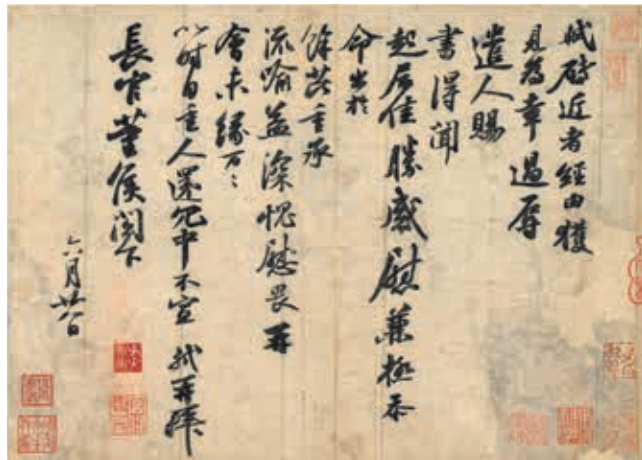 軾啓近者經由獲
見爲幸過辱
遣人賜
書得聞
起居佳勝感慰兼極忝
命出於
餘芘重承
流喻益深愧慰畏再
會未緣万〻
以時自重人還冗中不宣 軾再拜
長官董侯閤下
六月廿八日